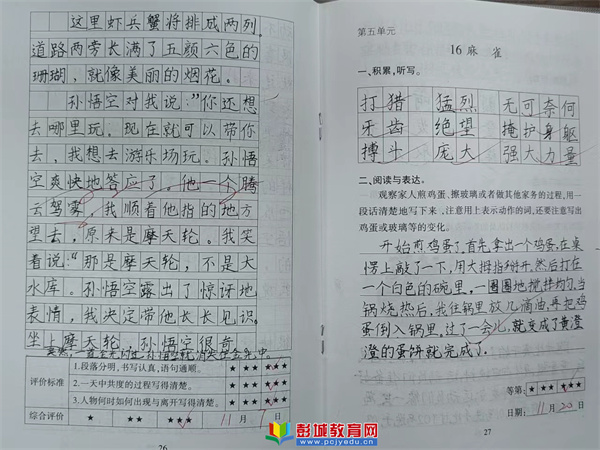 这里虾兵蟹将排成两列。
道路两旁长满了五颜六色的
珊瑚，就像美丽的烟花。
孙悟空对我说："你还想
去哪里玩，现在就可以带你
去，我想去游乐场玩。孙悟
空爽快地答应了，他一个腾
云驾雾，我顺着他指的地方
望去，原来是摩天轮。我笑
着说："那是摩天轮，不是大
水库。孙悟空露出了惊讶地
表情，我决定带他长长见识。
坐上摩天轮，孙悟空很奇
评价标准
1.段落分明，书写认真，语句通顺。 ★★★★★
2.一天中共度的过程写得清楚。 ★★★★★
3.人物何时如何出现与离开写得清楚。 ★★★★★
综合评价 ★ ★★ ★★★ 11月7日
26
第五单元
16 麻雀
一、积累，听写。
打猎 猛烈 无可奈何
牙齿 绝望 掩护身躯
搏斗 庞大 强大力量
二、阅读与表达。
观察家人煎鸡蛋、擦玻璃或者做其他家务的过程，用一
段话清楚地写下来，注意用上表示动作的词，还要注意写出
鸡蛋或玻璃等的变化。
开始煎鸡蛋了，首先拿出一个鸡蛋，在桌
愣上敲了一下，用大拇指掰开，然后打在
一个白色的碗里，一圈圈地搅拌均匀，当
锅烧热后，我往锅里放几滴油，再把鸡
蛋倒入锅里，过了一会儿，就变成了黄澄
澄的蛋饼就完成了。
等第：★★★★★
日期：11月20日
27
彭城教育网
www.pcjyedu.cn